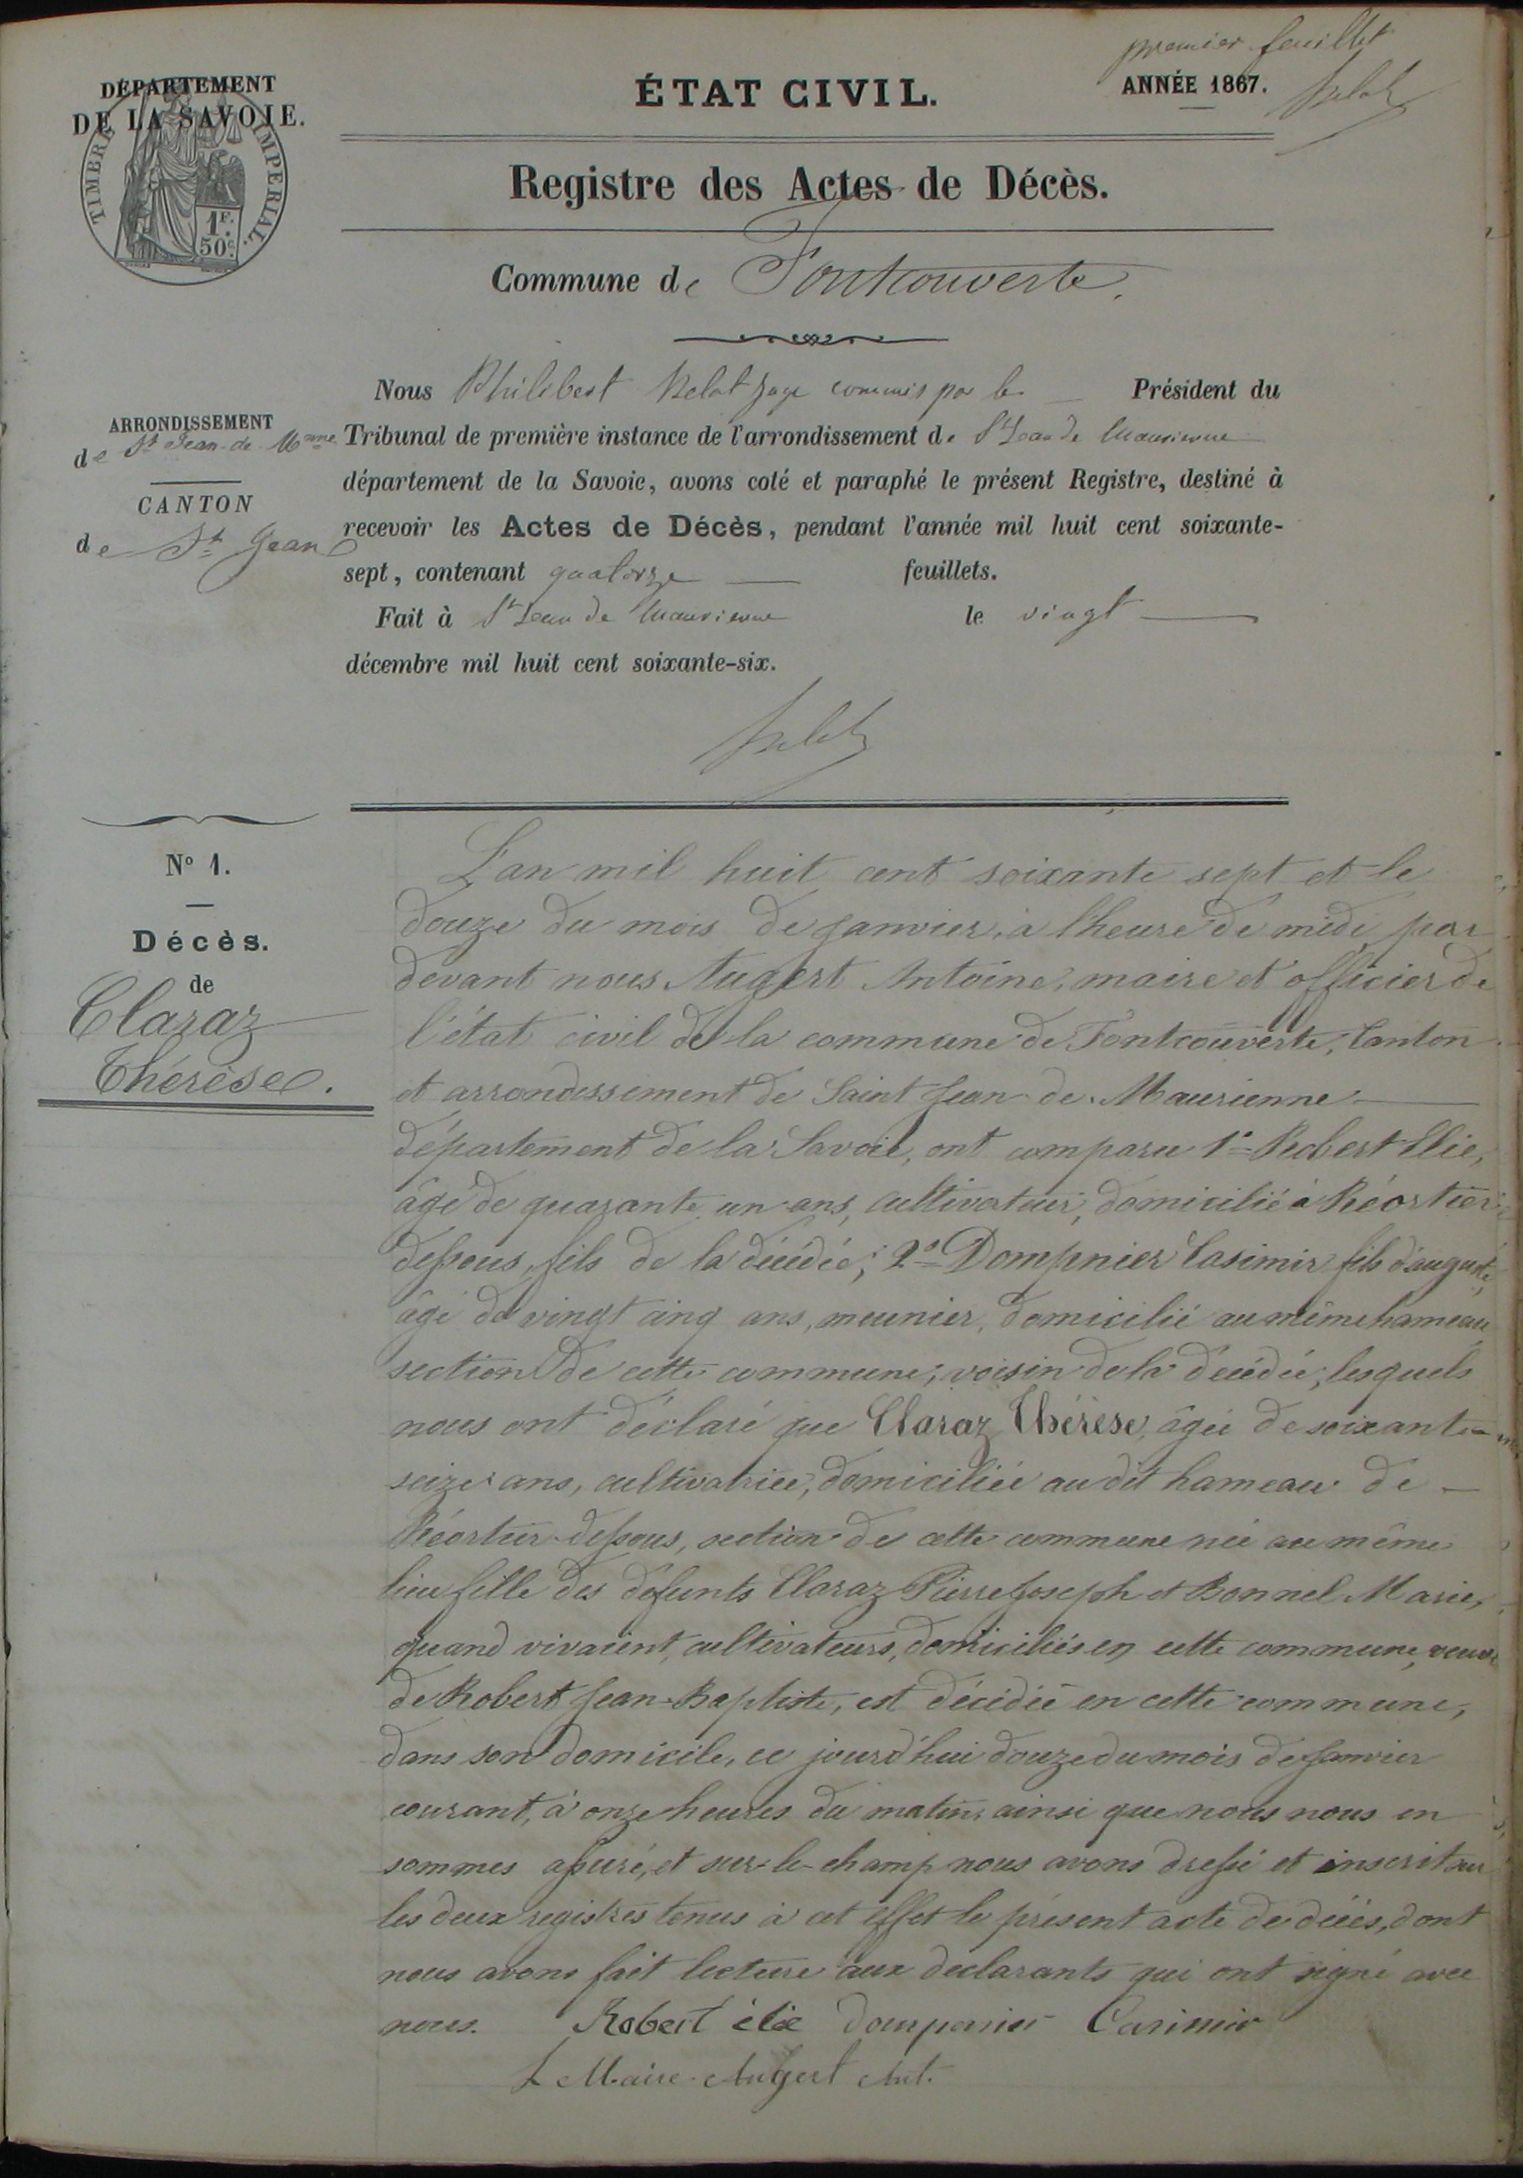 premier feuillet
DÉPARTEMENT
DE LA SAVOIE.
TIMBRE IMPERIAL.
1F.
50c.
ÉTAT CIVIL.
ANNÉE 1867.
Registre des Actes de Décès.
Commune de Fontcouverte.
ARRONDISSEMENT
de St Jean-de-Mnne
CANTON
de St Jean
Nous Philibert juge commis par le Président du
Tribunal de première instance de l'arrondissement de St Jean de Maurienne
département de la Savoie, avons coté et paraphé le présent Registre, destiné à
recevoir les Actes de Décès, pendant l'année mil huit cent soixante-
sept, contenant quatorze feuillets.
Fait à St Jean de Maurienne le vingt
décembre mil huit cent soixante-six.
No 1.
Décès.
de
Claraz
Thérèse.
L'an mil huit cent soixante sept et le
douze du mois de janvier, à l'heure de midi, par
devant nous Augert Antoine, maire et officier de
l'état civil de la commune de Fontcouverte, Canton
et arrondissement de Saint Jean de Maurienne
département de la Savoie, ont comparu 1o Robert Elie,
âgé de quarante un ans, cultivateur, domicilié à Réortier
dessous, fils de la décédée; 2o Dompnier Casimir fils d'auguste,
âgé de vingt cinq ans, meunier, domicilié au même hameau
section de cette commune, voisin de la décédée, lesquels
nous ont déclaré que Claraz Thérèse, âgée de soixante
seize ans, cultivatrice, domiciliée au dit hameau de
Réortier-dessous, section de cette commune née au même
lieu fille des défunts Claraz Pierre Joseph et Bonnel Marie,
quand vivaient, cultivateurs, domiciliés en cette commune, veuve
de Robert Jean-Baptiste, est décédée en cette commune,
dans son domicile, ce jourd'hui douze du mois de janvier
courant, à onze heures du matin, ainsi que nous nous en
sommes assuré, et sur-le-champ nous avons dressé et inscrit sur
les deux registres tenus à cet effet le présent acte de décès, dont
nous avons fait lecture aux déclarants qui ont signé avec
nous. Robert élie dompnier Casimir
L Maire Augert Ant.